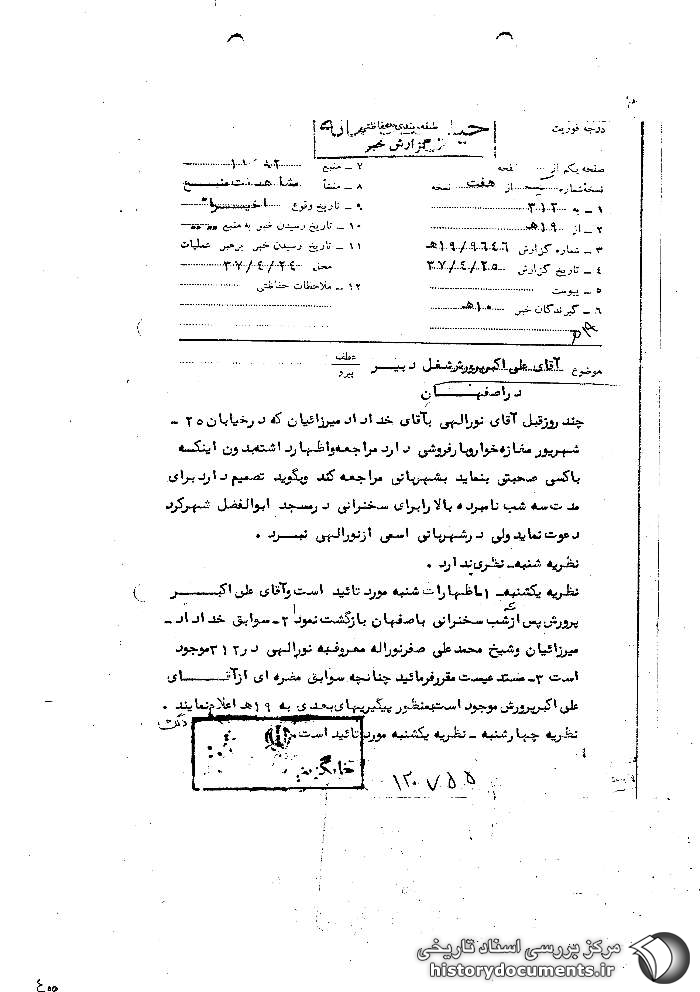 درجه فوریت
طبقه بندی حفاظتی
گزارش خبر
صفحه یکم از صفحه
نسخه شماره از هفت نسخه
۱ - به ۳۱۲
۲ - از ۱۹هـ
۳ - شماره گزارش ۱۹/۹۶۴۶هـ
۴ - تاریخ گزارش ۳۷/۴/۲۵
۵ - پیوست
۶ - گیرندگان خبر ۱۰هـ
۷ - منبع
۸ - منشأ مشاهدات منبع
۹ - تاریخ وقوع اخیرا"
۱۰ - تاریخ رسیدن خبر به منبع
۱۱ - تاریخ رسیدن خبر برهبر عملیات
محل ۳۷/۴/۲۴
۱۲ - ملاحظات حفاظتی
موضوع آقای علی اکبرپرورش شغل دبیر
عطف
پیرو
دراصفهان
چند روزقبل آقای نورالهی بآقای خدادادمیرزائیان که درخیابان ۲۵ -
شهریور مغازه خواروبارفروشی دارد مراجعه واظهارداشته بدون اینکه
باکسی صحبتی بنماید بشهربانی مراجعه کند وبگوید تصمیم داردبرای
مدت سه شب نامبرده بالا رابرای سخنرانی درمسجد ابوالفضل شهرکرد
دعوت نماید ولی درشهربانی اسمی ازنورالهی نبرد .
نظریه شنبه - نظری ندارد .
نظریه یکشنبه - ۱- اظهارات شنبه مورد تائید است وآقای علی اکبر
پرورش پس از شب سخنرانی باصفهان بازگشت نمود ۲- سوابق خداداد -
میرزائیان وشیخ محمدعلی صفرنوراله معروف به نورالهی در ۳۱۲ موجود
است ۳- مستدعیست مقررفرمائید چنانچه سوابق مضره ای ازآقای
علی اکبرپرورش موجود است بمنظور پیگیریهای بعدی به ۱۹هـ اعلام نمایند .
نظریه چهارشنبه - نظریه یکشنبه مورد تائید است .
۱۲۰۷۵۵
مرکز بررسی اسناد تاریخی
historydocuments.ir
۴۵۵